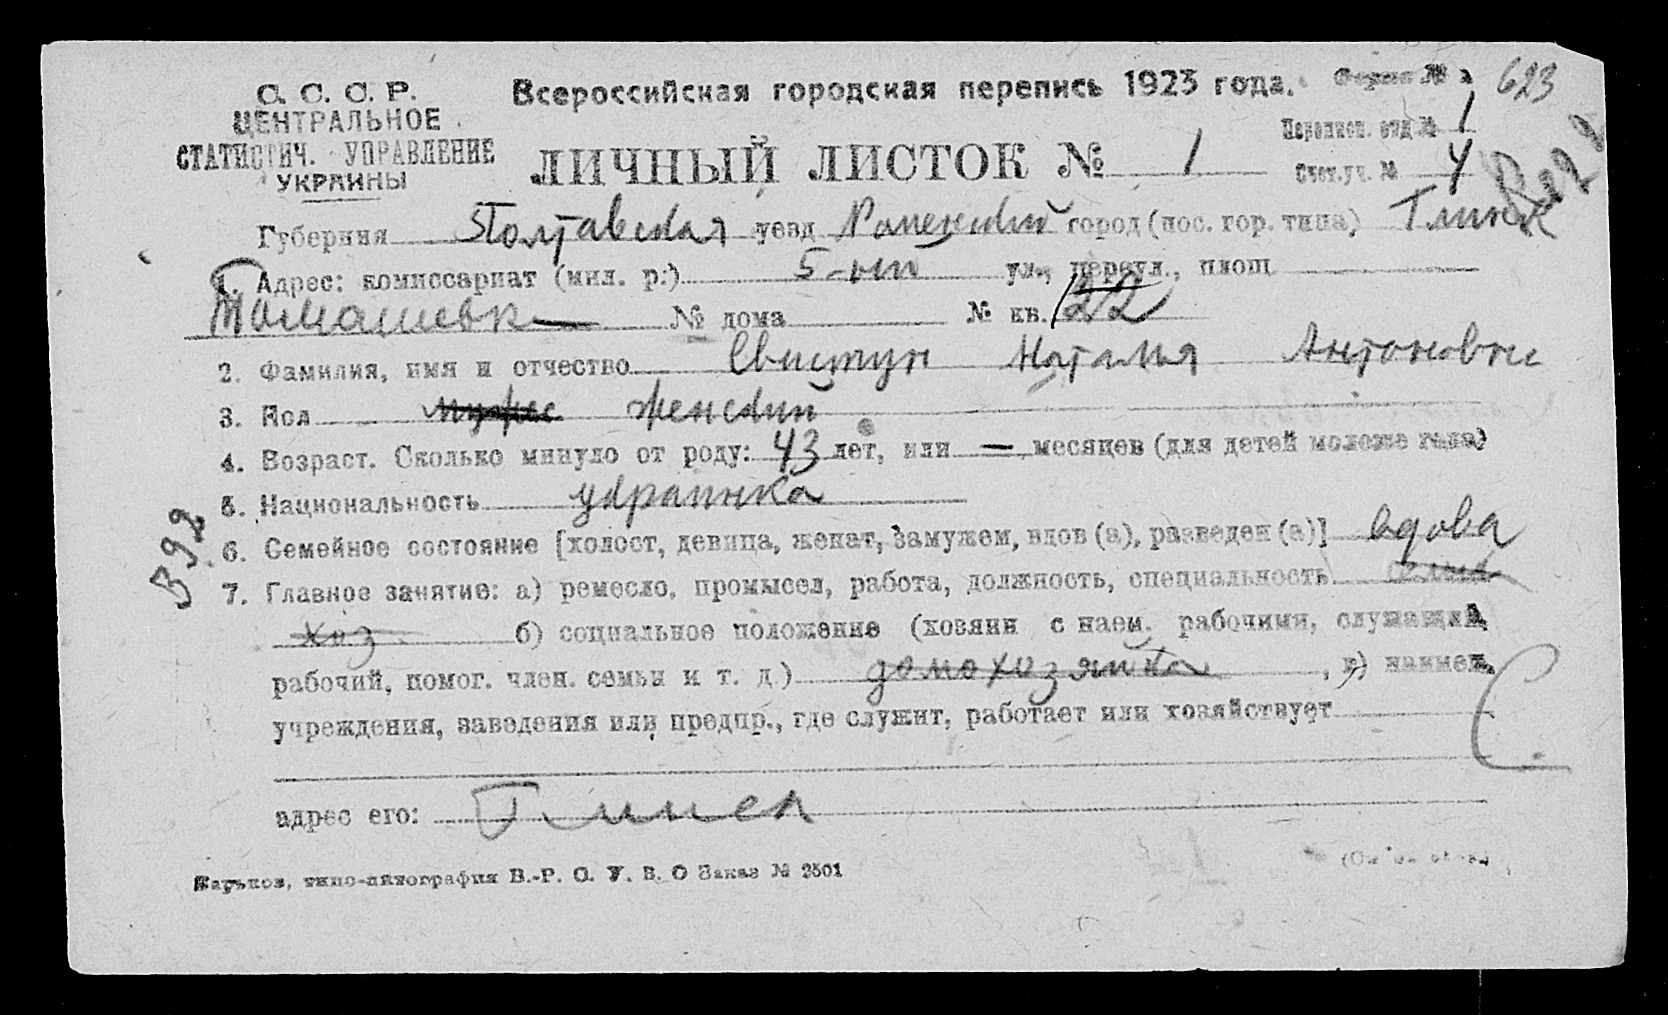 С. С. С. Р.
ЦЕНТРАЛЬНОЕ
СТАТИСТИЧ. УПРАВЛЕНИЕ
УКРАИНЫ
Всероссийская городская перепись 1923 года.
Форма № 623
ЛИЧНЫЙ ЛИСТОК № 1
Переписн. отд № 1
Счет. уч. № 4
Губерния Полтавская уезд Роменский город (пос. гор. типа) Глинск
1. Адрес: комиссариат (мил. р:) 5-ый ул., переул., площ.
№ дома № кв. 22
2. Фамилия, имя и отчество Свистун Наталья Антоновна
3. Пол мужес женский
4. Возраст. Сколько минуло от роду: 43 лет, или — месяцев (для детей моложе года)
5. Национальность украинка
6. Семейное состояние [холост, девица, женат, замужем, вдов (а), разведен (а)] вдова
5392
7. Главное занятие: а) ремесло, промысел, работа, должность, специальность сельск
хоз б) социальное положение (хозяин с наем. рабочими, служащий,
рабочий, помог. член. семьи и т. д) домохозяйка, в) наимен.
учреждения, заведения или предпр., где служит, работает или хозяйствует
адрес его: Глинск
Харьков, типо-литография В.-Р. С. У. В. О Заказ № 2501